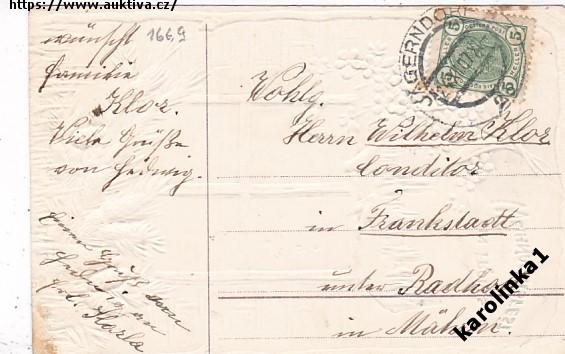 https://www.auktiva.cz/
166,9
wünscht
Familie
Klor.
Viele Grüße
von Hedwig.
Einen Gruß von
JÄGERNDORF
5
5
5
5
Wohlg.
Herrn Wilhelm Klor
Conditor
in Frankstadt
unter Radhos
in Mähren.
karolinka1